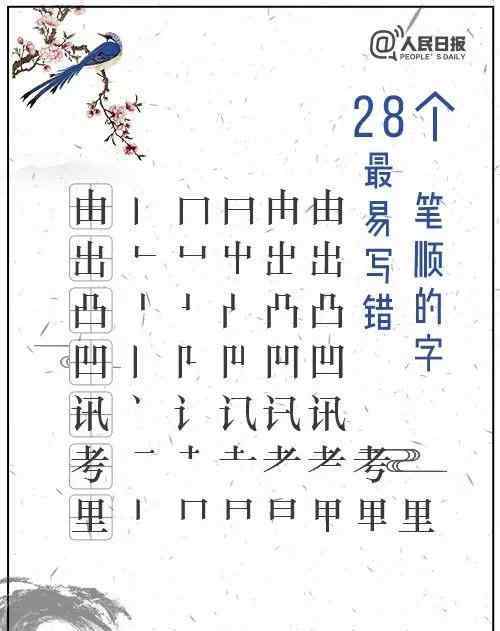 @人民日报
PEOPLE'S DAILY
28个
最易写错
笔顺的字
由 丨 冂 日 由 由
出 凵 屮 出 出
凸 丨 凸 凸
凹 丨 凹 凹
讯 丶 讠 讯 讯
考 一 十 土 耂 考
里 丨 冂 日 日 甲 甲 里